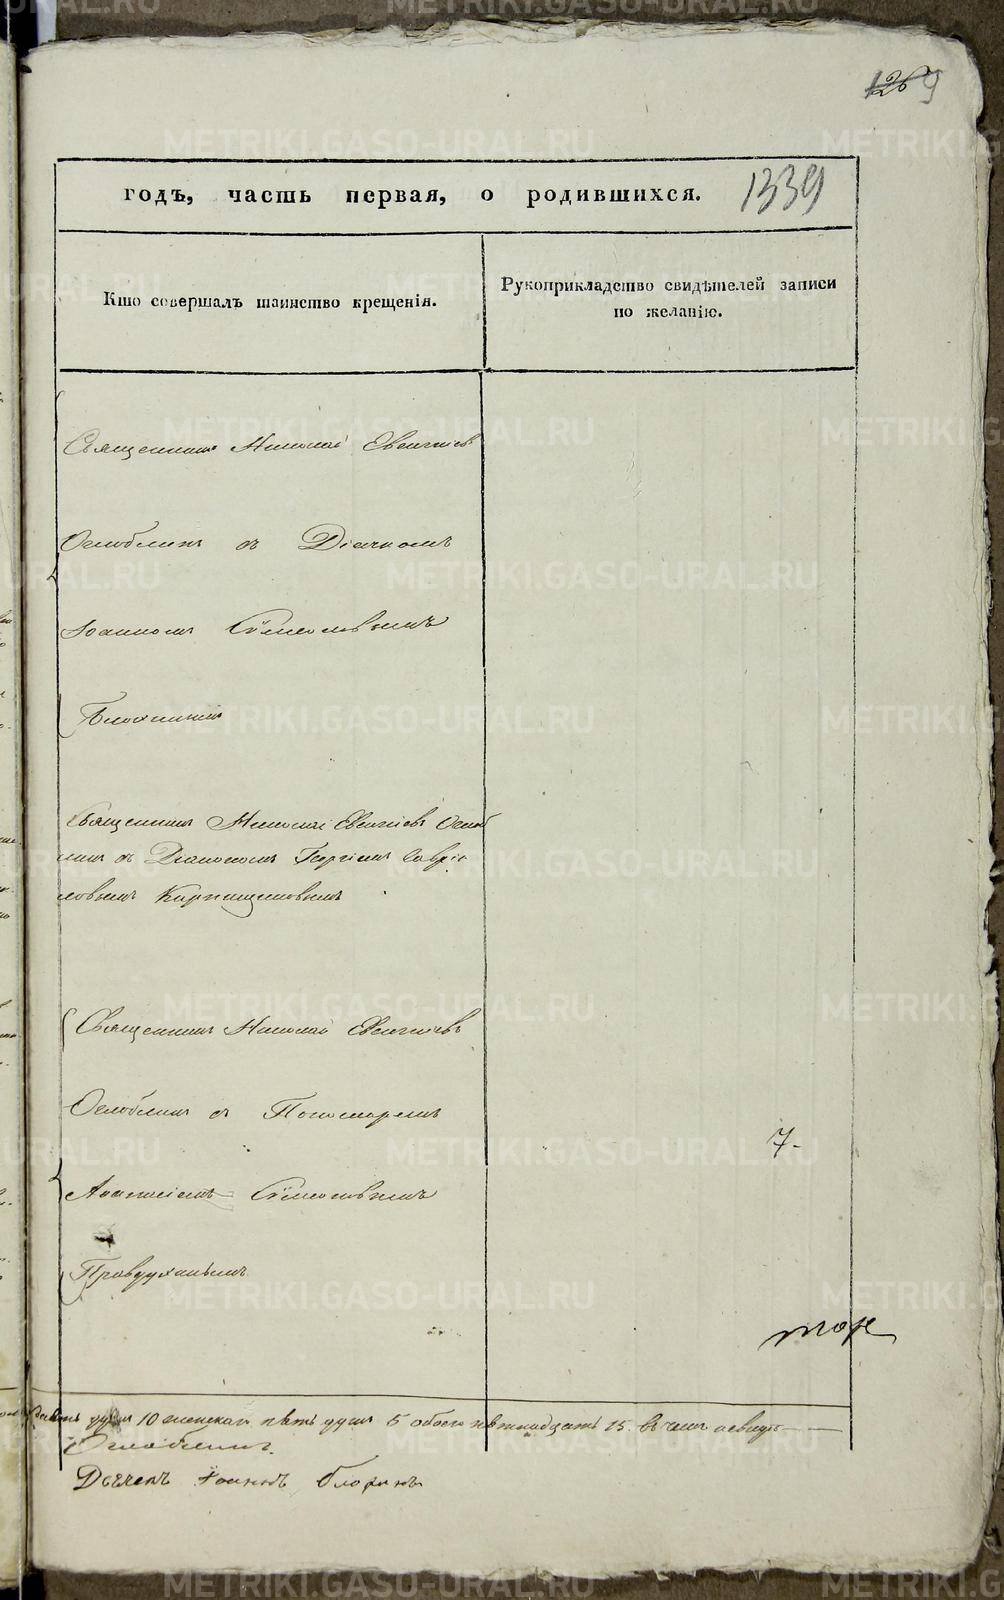 126 9
годъ, часть первая, о родившихся. 1339
Кто совершалъ таинство крещенія.
Рукоприкладство свидѣтелей записи
по желанію.
Священникъ Николай Евенгіевъ
Оглоблинъ съ Дьячкомъ
Іоанномъ Сѵмеоновымъ
Блохинымъ
Священникъ Николай Евенгіевъ Оглоб
линъ съ Діакономъ Георгіемъ Гаврі
ловымъ
Священникъ Николай Евенгіевъ
Оглоблинъ съ Пономаремъ
Аѳанасіемъ Сѵмеоновымъ
7.
тоже
душъ 10 женска пять душъ 5 обоего пятнадцать 15. въ чемъ
Оглоблинъ.
Дьячекъ Іоаннъ Блохинъ
METRIKI.GASO-URAL.RU